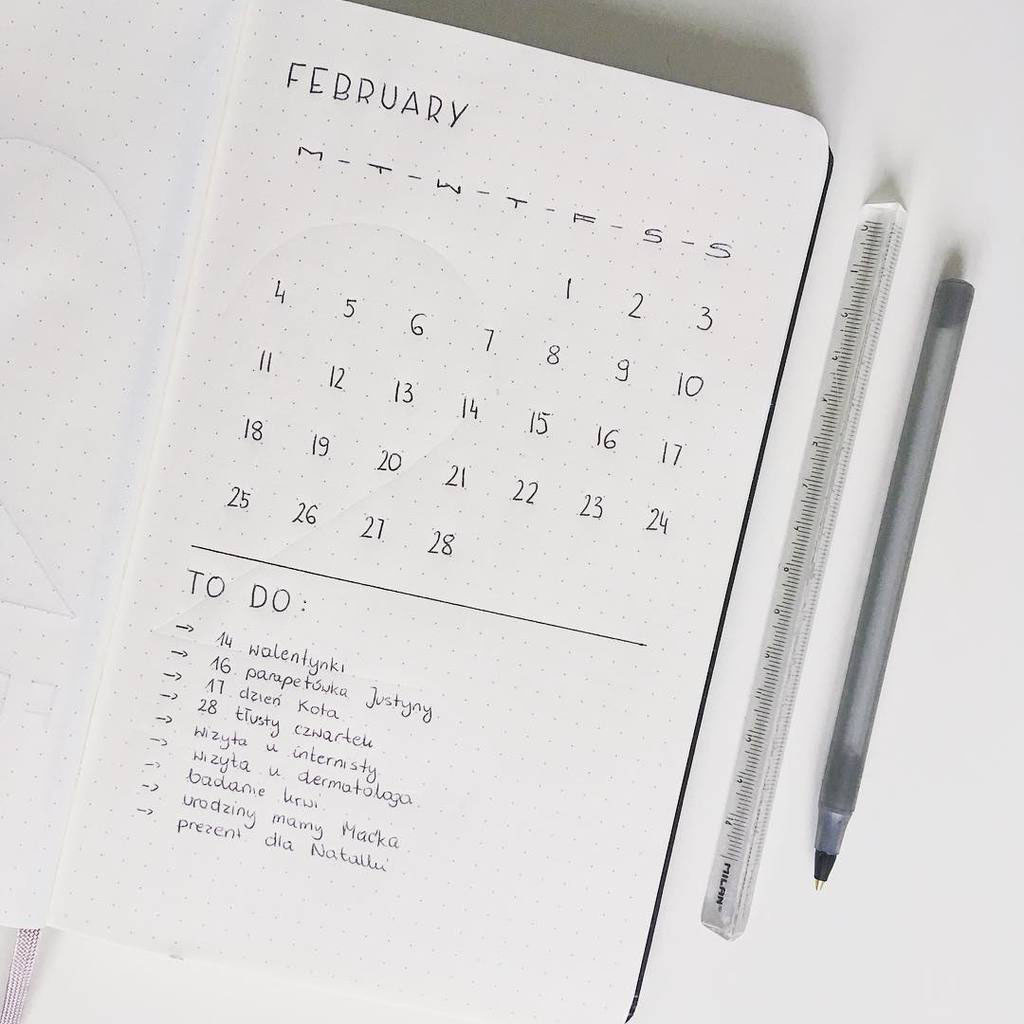 FEBRUARY
M - T - W - T - F - S - S
1 2 3
4 5 6 7 8 9 10
11 12 13 14 15 16 17
18 19 20 21 22 23 24
25 26 27 28
TO DO:
→ 14 walentynki
→ 16 parapetówka Justyny
→ 17 dzień kota
→ 28 tłusty czwartek
→ wizyta u internisty
→ wizyta u dermatologa
→ badanie krwi
→ urodziny mamy Maćka
→ prezent dla Natalki
MILAN